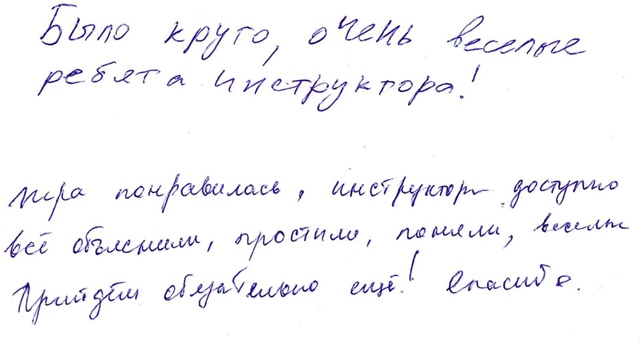 Было круто, очень веселые
ребята инструктора!
игра понравилась, инструктора доступно
всё объяснили, простили, поняли, веселые
Прийдём обязательно ещё! Спасибо.